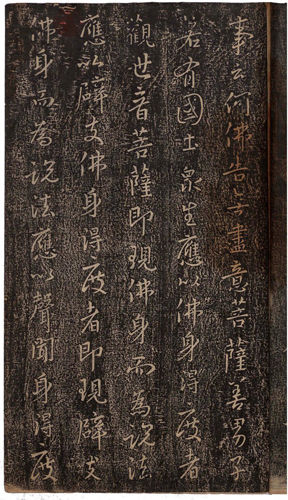 事云何佛告无盡意菩薩善男子
若有國土衆生應以佛身得度者
觀世音菩薩即現佛身而為說法
應以辟支佛身得度者即現辟支
佛身而為說法應以聲聞身得度